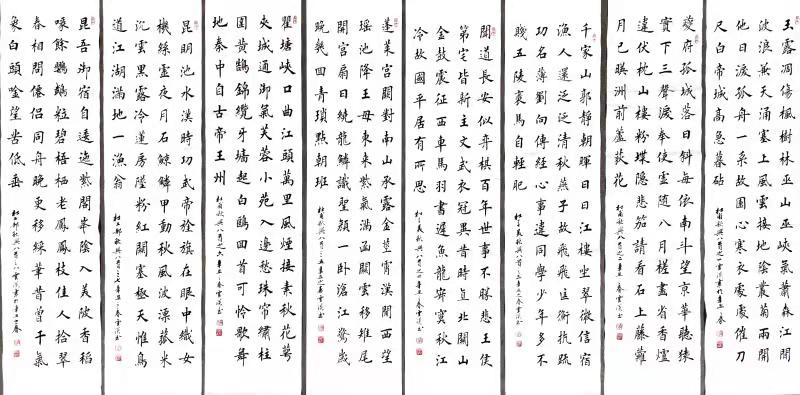 玉露凋傷楓樹林巫山巫峽氣蕭森江間
波浪兼天湧塞上風雲接地陰叢菊兩開
他日淚孤舟一系故園心寒衣處處催刀
尺白帝城高急暮砧
夔府孤城落日斜每依南斗望京華聽猿
實下三聲淚奉使虛隨八月槎畫省香爐
違伏枕山樓粉堞隱悲笳請看石上藤蘿
月已映洲前蘆荻花
千家山郭靜朝暉日日江樓坐翠微信宿
漁人還泛泛清秋燕子故飛飛匡衡抗疏
功名薄劉向傳經心事違同學少年多不
賤五陵裘馬自輕肥
聞道長安似弈棋百年世事不勝悲王侯
第宅皆新主文武衣冠異昔時直北關山
金鼓震征西車馬羽書遲魚龍寂寞秋江
冷故國平居有所思
蓬萊宮闕對南山承露金莖霄漢間西望
瑤池降王母東來紫氣滿函關雲移雉尾
開宮扇日繞龍鱗識聖顏一臥滄江驚歲
晚幾回青瑣點朝班
瞿塘峽口曲江頭萬里風煙接素秋花萼
夾城通御氣芙蓉小苑入邊愁珠帘繡柱
圍黃鵠錦纜牙墻起白鷗回首可憐歌舞
地秦中自古帝王州
昆明池水漢時功武帝旌旗在眼中織女
機絲虛夜月石鯨鱗甲動秋風波漂菰米
沉雲黑露冷蓮房墜粉紅關塞極天惟鳥
道江湖滿地一漁翁
昆吾御宿自逶迤紫閣峯陰入美陂香稻
啄餘鸚鵡粒碧梧栖老鳳凰枝佳人拾翠
春相問僊侶同舟晚更移綵筆昔曾干氣
象白頭吟望苦低垂